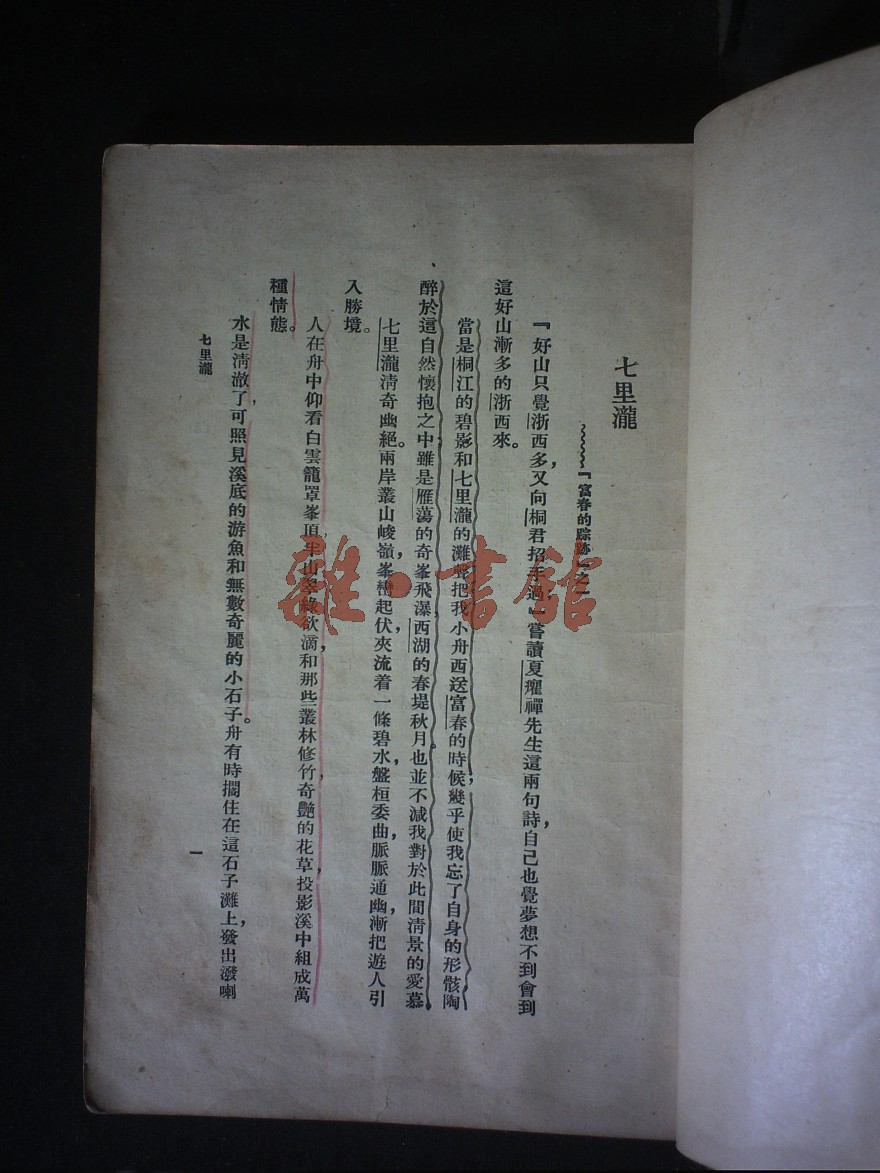 七里瀧
『富春的踪跡』之一
『好山只覺浙西多，又向桐君招手過，』嘗讀夏瓘禪先生這兩句詩，自己也覺夢想不到會到
這好山漸多的浙西來。
當是桐江的碧影和七里瀧的灘聲把我小舟西送富春的時候，幾乎使我忘了自身的形骸陶
醉於這自然懷抱之中雖是雁蕩的奇峯飛瀑，西湖的春堤秋月，也並不減我對於此間清景的愛慕。
七里瀧清奇幽絕。兩岸叢山峻嶺，峯巒起伏，夾流着一條碧水，盤桓委曲，脈脈通幽，漸把遊人引
入勝境。
人在舟中仰看白雲籠罩峯頂，半山翠綠欲滴，和那些叢林修竹，奇艷的花草，投影溪中組成萬
種情態。
水是清澈了，可照見溪底的游魚和無數奇麗的小石子。舟有時擱住在這石子灘上，發出潑喇
七里瀧
一
雜·書館